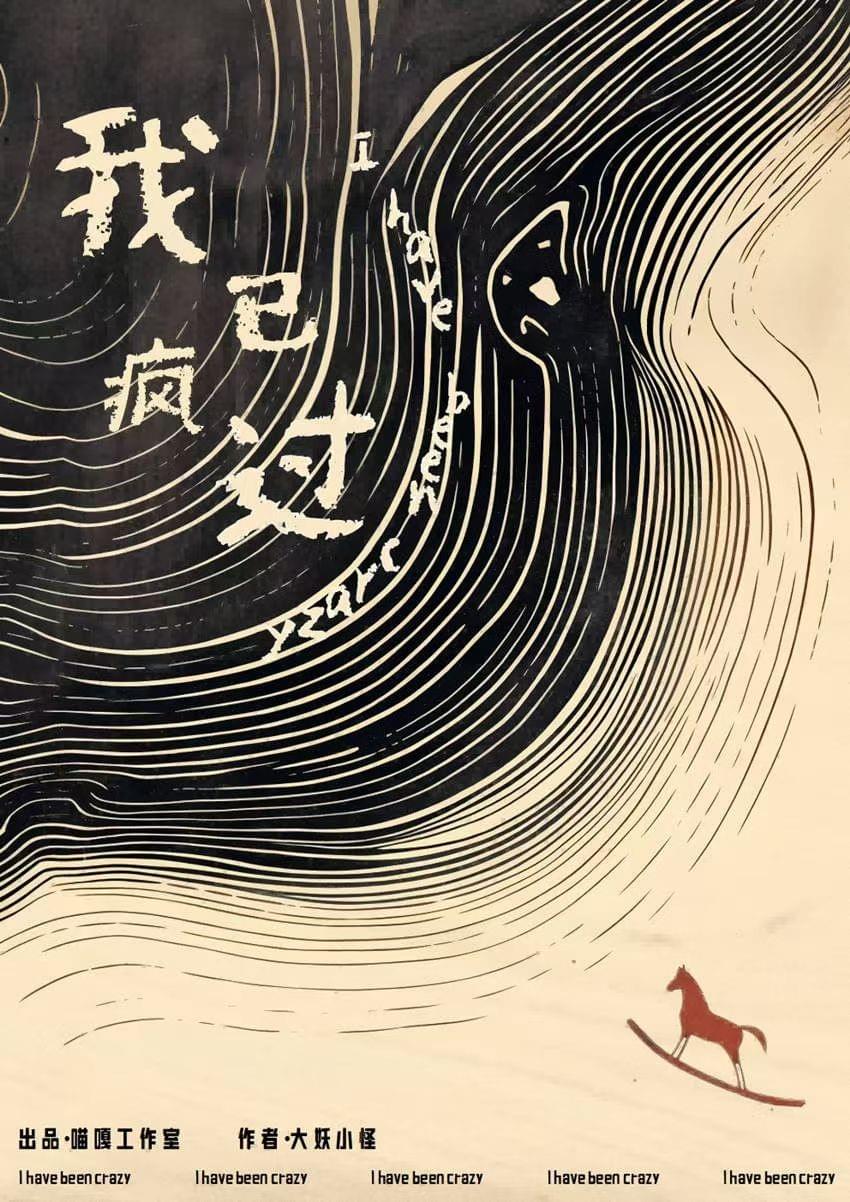 我已疯过
I have been
yzarc
出品·喵嘎工作室 作者·大妖小怪
I have been crazy I have been crazy I have been crazy I have been crazy I have been crazy